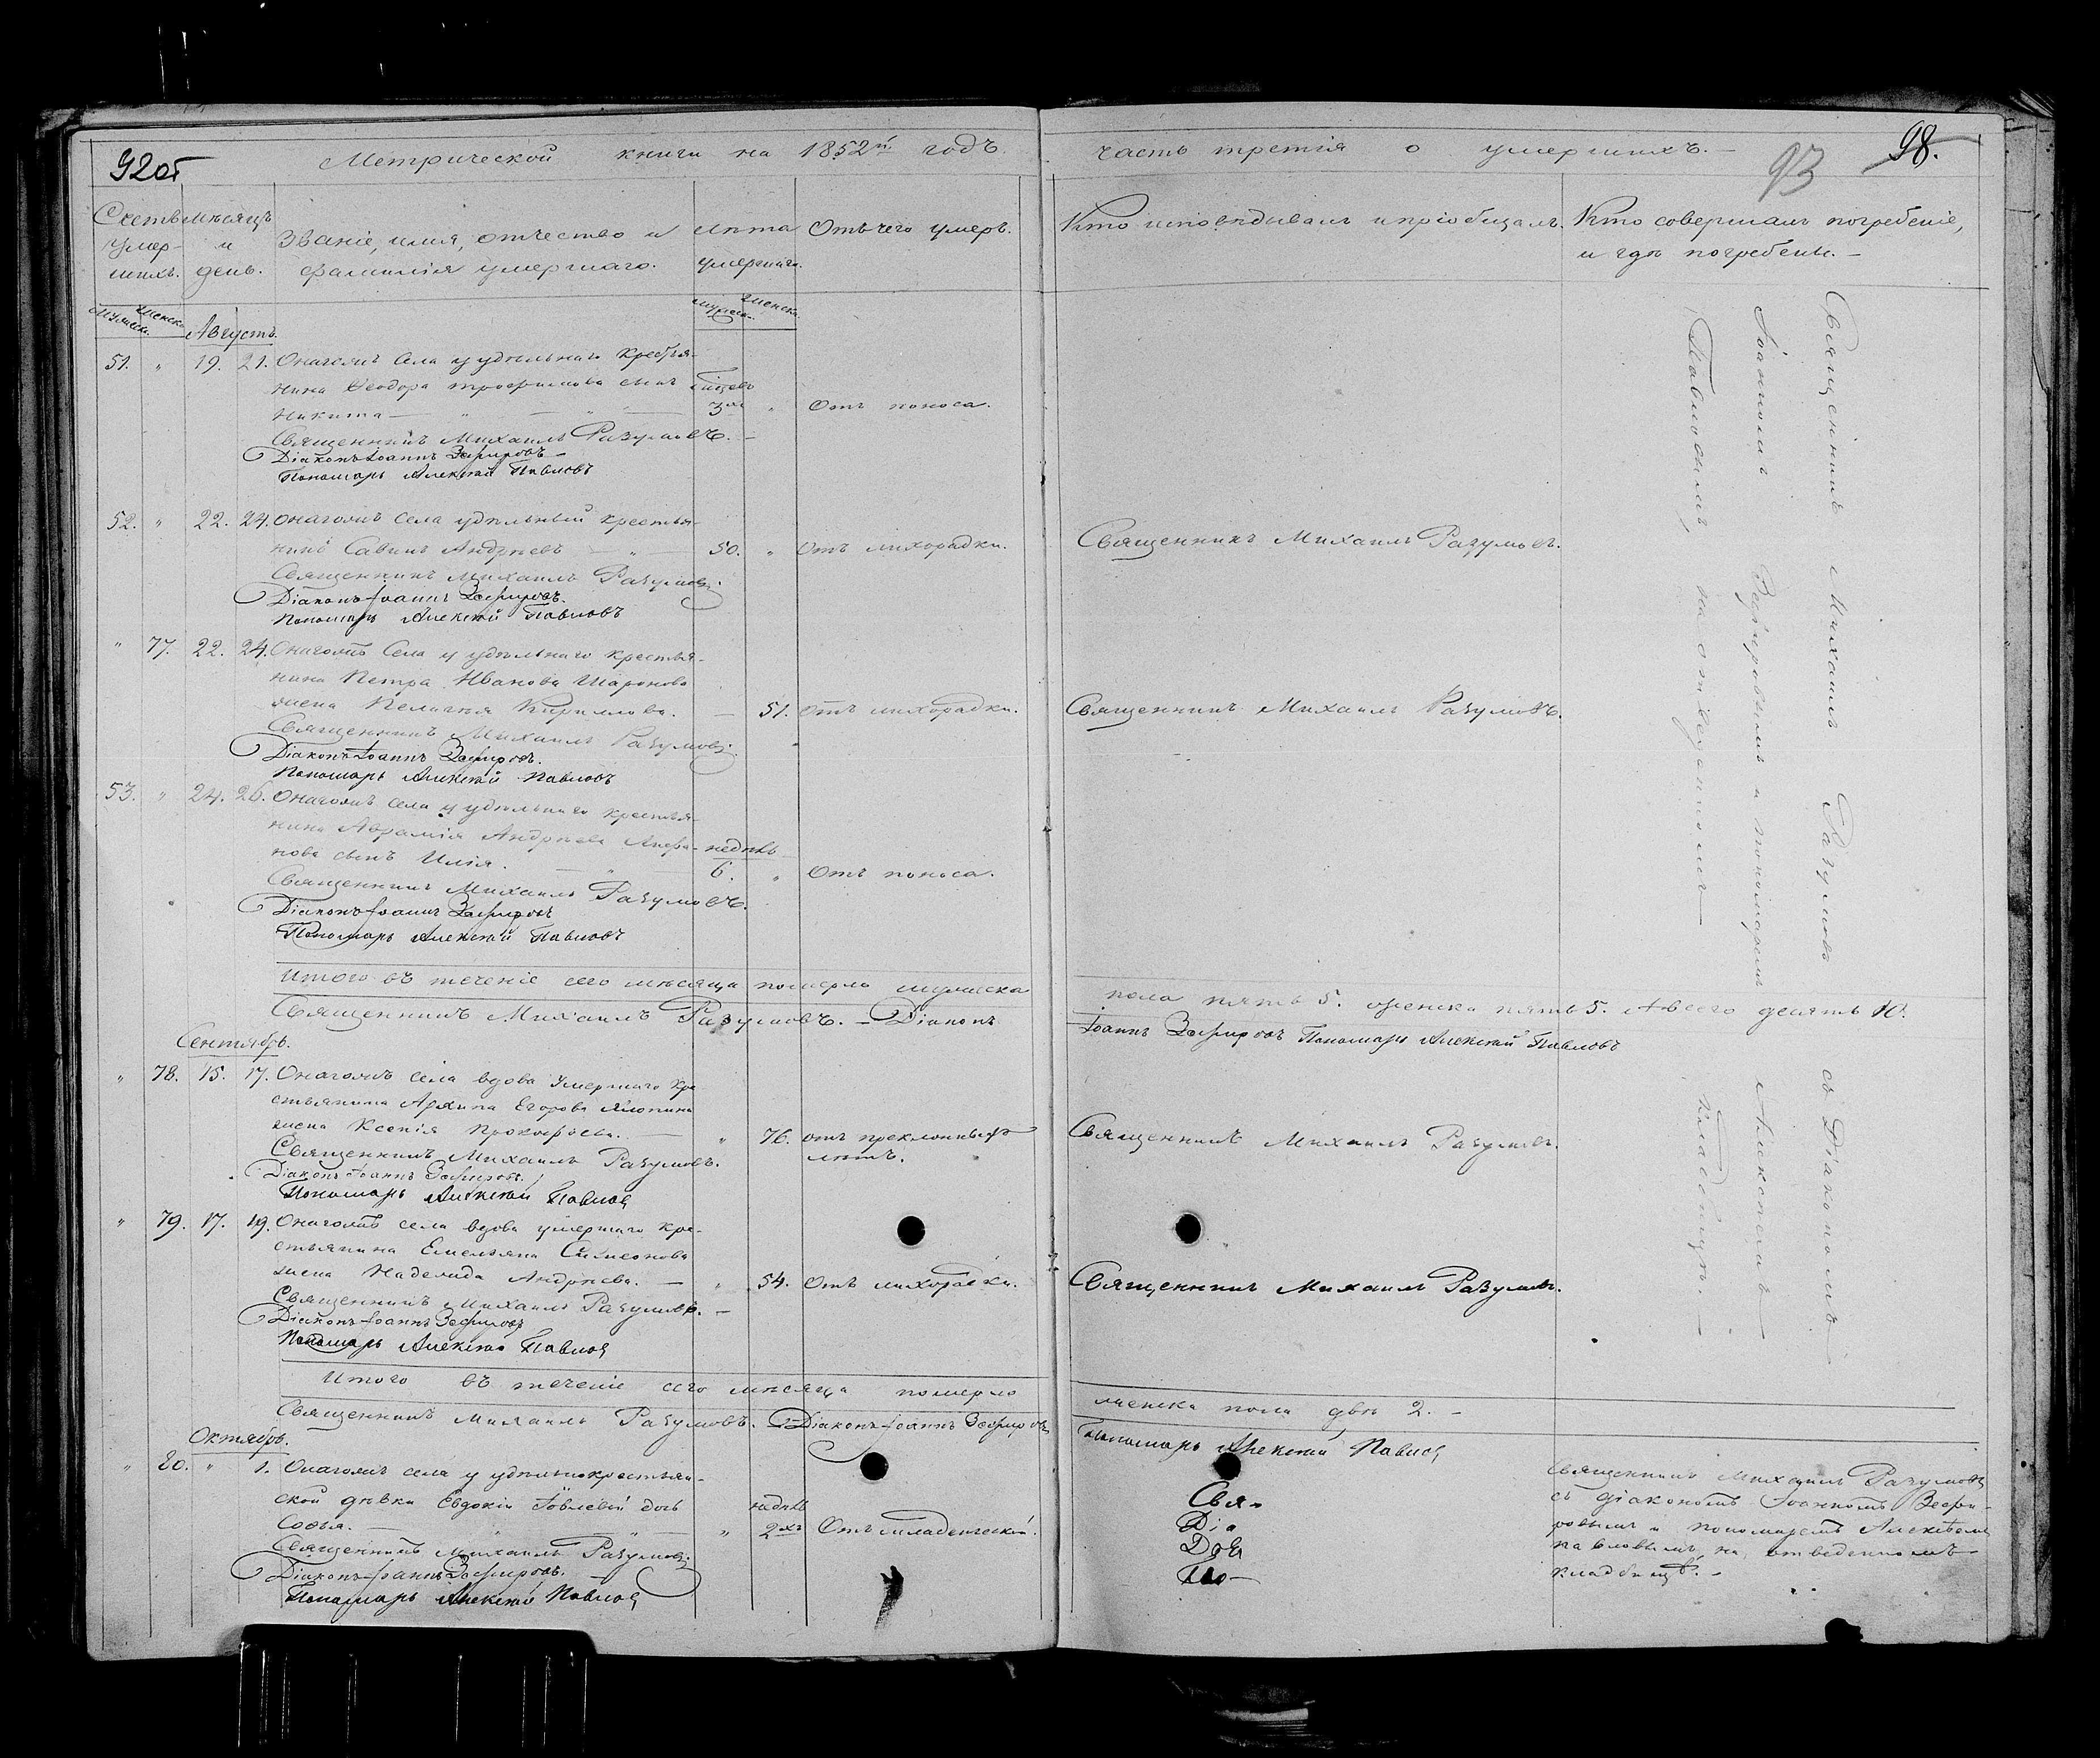 92 об
Метрической книги на 1852й годъ.
Счетъ умер-шихъ.
Мѣсяцъ и день.
Званіе, имя, отчество и
фамилія умершаго.
лѣта
умершаго.
Отъ чего умеръ.
Мужеска. Женска.
Мужеска. Женска.
Августъ.
51. " 19. 21. Онагожъ Села у удѣльнаго крестья-
нина Ѳеодора Трофимова сынъ
Никита — " — " — 3хъ " Отъ поноса.
Священникъ Михаилъ Разумовъ. —
Діаконъ Іоаннъ Зефировъ —
Пономарь Алексѣй Павловъ
52. " 22. 24. Онагожъ села удѣльный крестья-
нинъ Савинъ Андреевъ — " — 50. " Отъ лихорадки.
Священникъ Михаилъ Разумовъ.
Діаконъ Іоаннъ Зефировъ.
Пономарь Алексѣй Павловъ
" 77. 22. 24. Онагожъ Села у удѣльнаго крестья-
нина Петра Иванова Шаронова
жена Пелагея Кирилова. — 51. Отъ лихорадки.
Священникъ Михаилъ Разумовъ.
Діаконъ Іоаннъ Зефировъ.
Пономарь Алексѣй Павловъ
53. " 24. 26. Онагожъ села у удѣльнаго крестья-
нина Аврамія Андреева
нова сынъ Илія. — " — недѣль 6. " Отъ поноса.
Священникъ Михаилъ Разумовъ.
Діаконъ Іоаннъ Зефировъ
Пономарь Алексѣй Павловъ
Итого въ теченіе сего мѣсяца померло мужеска
Священникъ Михаилъ Разумовъ. — Діаконъ
Сентябрь.
" 78. 15. 17. Онагожъ села вдова умершаго кре-
стьянина Архипа Егорова
жена Ксенія Прокофьева. — " 76. отъ преклонныхъ
лѣтъ.
Священникъ Михаилъ Разумовъ.
Діаконъ Іоаннъ Зефировъ.
Пономарь Алексѣй Павловъ
" 79. 17. 19. Онагожъ села вдова умершаго кре-
стьянина Емельяна Симеонова
жена Надежда Андреева. — " 54. Отъ лихорадки.
Священникъ Михаилъ Разумовъ. —
Діаконъ Іоаннъ Зефировъ
Пономарь Алексѣй Павловъ
Итого въ теченіе сего мѣсяца померло
Священникъ Михаилъ Разумовъ. Діаконъ Іоаннъ Зефировъ
Октябрь.
" 80. " 1. Онагожъ села у удѣльнокрестьян-
ской дѣвки Евдокіи Іовлевой дочь
Софья. — " — недѣль " 2хъ Отъ младенческой.
Священникъ Михаилъ Разумовъ.
Діаконъ Іоаннъ Зефировъ.
Пономарь Алексѣй Павловъ
часть третія о умершихъ. —
93
98.
Кто исповѣдывалъ и пріобщалъ.
Кто совершалъ погребеніе,
и гдѣ погребены. —
Священникъ Михаилъ Разумовъ.
Священникъ Михаилъ Разумовъ.
Священникъ Михаилъ Разумовъ съ Діакономъ
Іоанномъ Зефировымъ и пономаремъ Алексѣемъ
Павловымъ, на отведенномъ кладбищѣ. —
пола пять 5. женска пять 5. А всего десять 10.
Іоаннъ Зефировъ Пономарь Алексѣй Павловъ
Священникъ Михаилъ Разумовъ.
Священникъ Михаилъ Разумовъ.
женска пола двѣ 2. —
Пономарь Алексѣй Павловъ
Свя-
Діа
По-
Священникъ Михаилъ Разумовъ
съ діакономъ Іоанномъ Зефи-
ровымъ и пономаремъ Алексѣемъ
Павловымъ, на отведенномъ
кладбищѣ. —